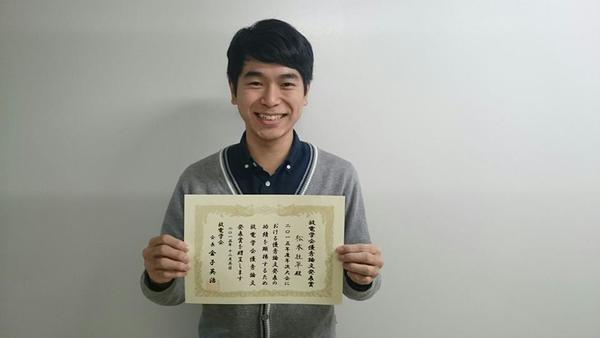 放電学会優秀論文発表賞
松本 壮平 殿
二〇一五年度年次大会に
おける優秀論文発表の
功績を顕揚するため
放電学会優秀論文
発表賞を贈呈します
二〇一五年 十二月五日
放電学会
会長 金子 英治